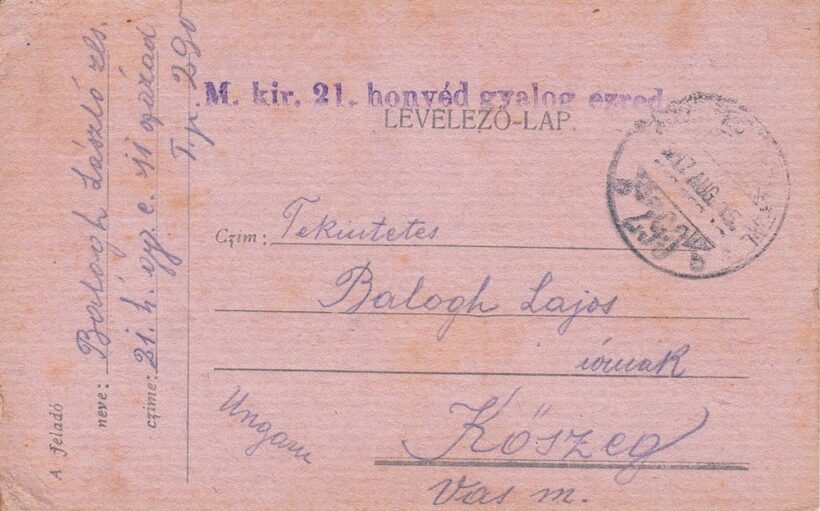 M. kir. 21. honvéd gyalog ezred
LEVELEZŐ-LAP
A feladó
neve: Balogh László zls.
czime: 21. h. gy. e. 11 század
T. p. 290
Czim: Tekintetes
Balogh Lajos
úrnak
Kőszeg
Vas m.
Ungarn
917 AUG. 15
290